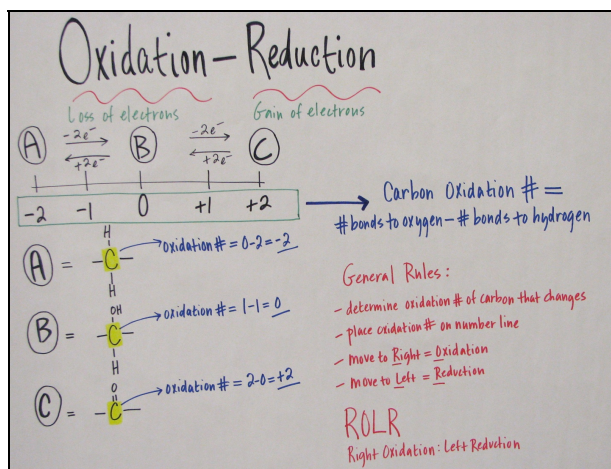 Oxidation – Reduction
Loss of electrons Gain of electrons
A -2e⁻ B -2e⁻ C
+2e⁻ +2e⁻
-2 -1 0 +1 +2
Carbon Oxidation # =
# bonds to oxygen – # bonds to hydrogen
H
A = – C – oxidation # = 0-2 = -2
H
OH
B = – C – oxidation # = 1-1 = 0
H
O
C = – C – oxidation # = 2-0 = +2
General Rules:
- determine oxidation # of carbon that changes
- place oxidation # on number line
- move to Right = Oxidation
- move to Left = Reduction
ROLR
Right Oxidation: Left Reduction